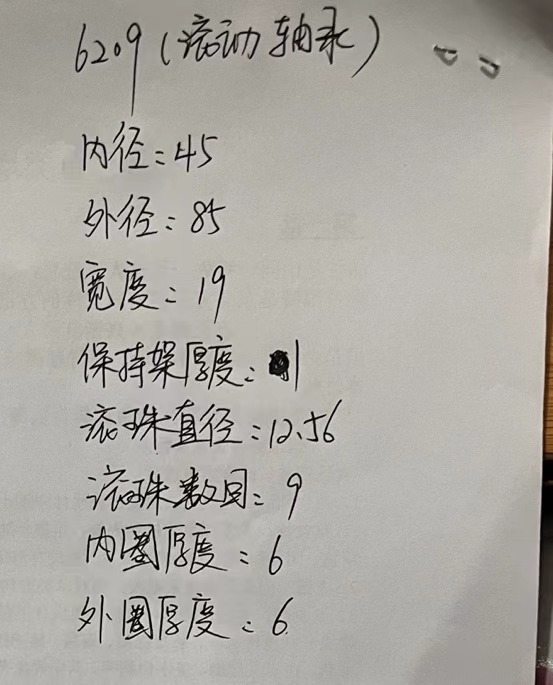 6209(滚动轴承)
内径:45
外径:85
宽度:19
保持架厚度:1
滚珠直径:12.56
滚珠数目:9
内圈厚度:6
外圈厚度:6